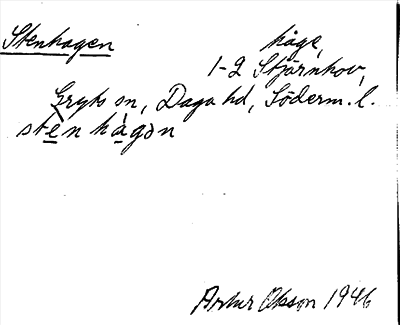 Stenhagen
håge,
1-2 Stjärnhov,
Gryts sn, Daga hd, Söderm. l.
stèn hàgən
Artur Olsson 1946